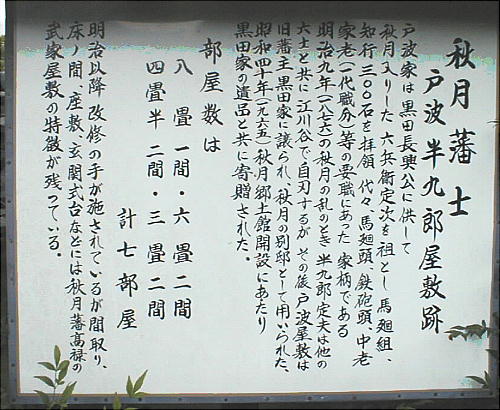 秋月藩士
戸波半九郎屋敷跡
戸波家は黒田長興公に供して
秋月入りした六兵衛定次を祖とし馬廻組、
知行三〇〇石を拝領代々、馬廻頭、鉄砲頭、中老
家老(一代職分)等の要職にあった家柄である
明治九年(一八七六)の秋月の乱のとき半九郎定夫は他の
六士と共に江川谷で自刃するがその後戸波屋敷は
旧藩主黒田家に譲られ、秋月の別邸として用いられた、
昭和四十年(一九六五)秋月郷土館開設にあたり
黒田家の遺品と共に寄贈された。
部屋数は
八畳一間・六畳二間
四畳半二間・三畳二間
計七部屋
明治以降改修の手が施されているが間取り、
床ノ間、座敷、玄関式台などには秋月藩高禄の
武家屋敷の特徴が残っている。